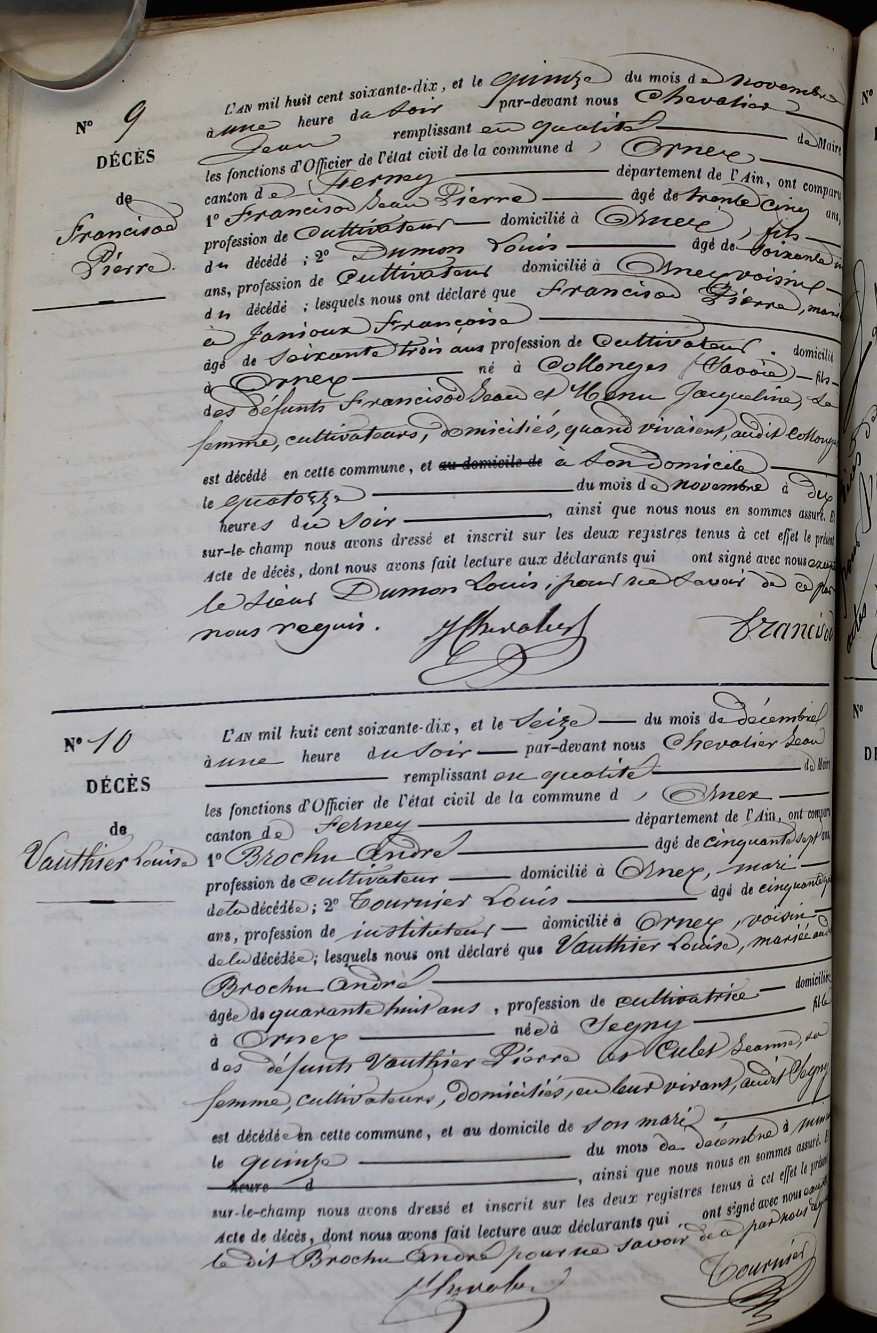 N° 9
DÉCÈS
de
Francisod
Pierre.
L'AN mil huit cent soixante-dix, et le quinze du mois de novembre
à une heure du soir par-devant nous Chevalier
Jean remplissant en qualité de Maire
les fonctions d'Officier de l'état civil de la commune d' Ornex
canton de Ferney département de l'Ain, ont comparu
1° Francisod Jean Pierre âgé de trente cinq ans,
profession de Cultivateur domicilié à Ornex, fils
du décédé ; 2° Dumon Louis âgé de soixante
ans, profession de Cultivateur domicilié à Ornex voisin
du décédé ; lesquels nous ont déclaré que Francisod Pierre, mari
à Janioux Françoise
âgé de soixante trois ans profession de Cultivateur. domicilié
à Ornex né à Collonges (Savoie) fils
des défunts Francisod Jean et Menu Jacqueline, sa
femme, cultivateurs, domiciliés, quand vivaient, audit Collonges
est décédé en cette commune, et au domicile de à son domicile
le quatorze du mois de novembre à dix
heures du soir, ainsi que nous nous en sommes assuré. Et
sur-le-champ nous avons dressé et inscrit sur les deux registres tenus à cet effet le présent
Acte de décès, dont nous avons fait lecture aux déclarants qui ont signé avec nous excepté
le sieur Dumon Louis, pour ne savoir de ce par
nous requis.
J Chevalier Francisod
N° 10
DÉCÈS
de
Vauthier Louise
L'AN mil huit cent soixante-dix, et le seize du mois de décembre
à une heure du soir par-devant nous Chevalier Jean
remplissant en qualité de Maire
les fonctions d'Officier de l'état civil de la commune d' Ornex
canton de Ferney département de l'Ain, ont comparu
1° Brochu André âgé de cinquante sept ans,
profession de cultivateur domicilié à Ornex, mari
de la décédée ; 2° Tournier Louis âgé de cinquante
ans, profession de instituteur domicilié à Ornex, voisin
de la décédée ; lesquels nous ont déclaré que Vauthier Louise, mariée audit
Brochu André
âgée de quarante huit ans, profession de cultivatrice domiciliée
à Ornex née à Segny fille
des défunts Vauthier Pierre et Culet Jeanne, sa
femme, cultivateurs, domiciliés, en leur vivant, audit Segny
est décédée en cette commune, et au domicile de son mari
le quinze du mois de décembre à minuit
heure d, ainsi que nous nous en sommes assuré. Et
sur-le-champ nous avons dressé et inscrit sur les deux registres tenus à cet effet le présent
Acte de décès, dont nous avons fait lecture aux déclarants qui ont signé avec nous excepté
le dit Brochu André pour ne savoir de ce par nous requis
Chevalier Tournier
N°
N°